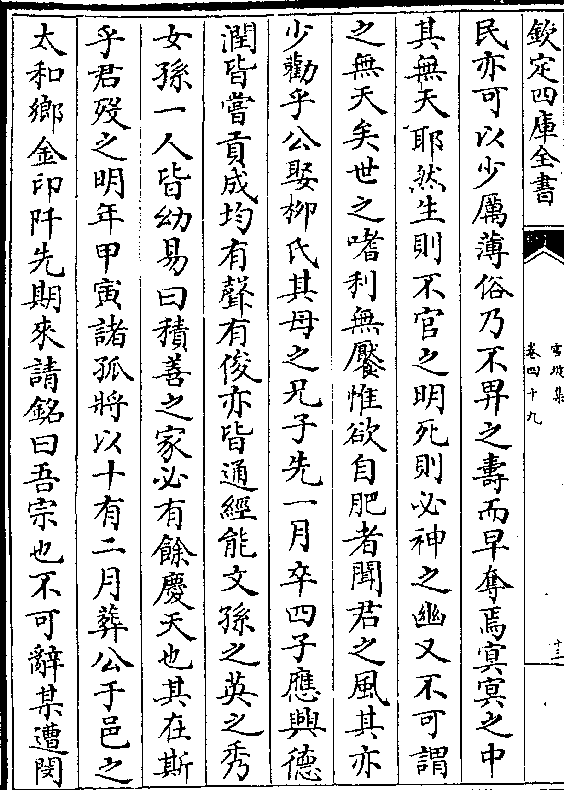 欽定四庫全書
雪坡集
卷四十九
十三
民亦可以少厲薄俗乃不畀之壽而早奪焉冥冥之中
其無天耶然生則不官之明死則必神之幽又不可謂
之無天矣世之嗜利無饜惟欲自肥者聞君之風其亦
少勸乎公娶柳氏其母之兄子先一月卒四子應輿德
潤皆嘗貢成均有聲有俊亦皆通經能文孫之英之秀
女孫一人皆幼易曰積善之家必有餘慶天也其在斯
乎君歿之明年甲寅諸孤將以十有二月葬公于邑之
太和鄉金印阡先期來請銘曰吾宗也不可辭某遭閔